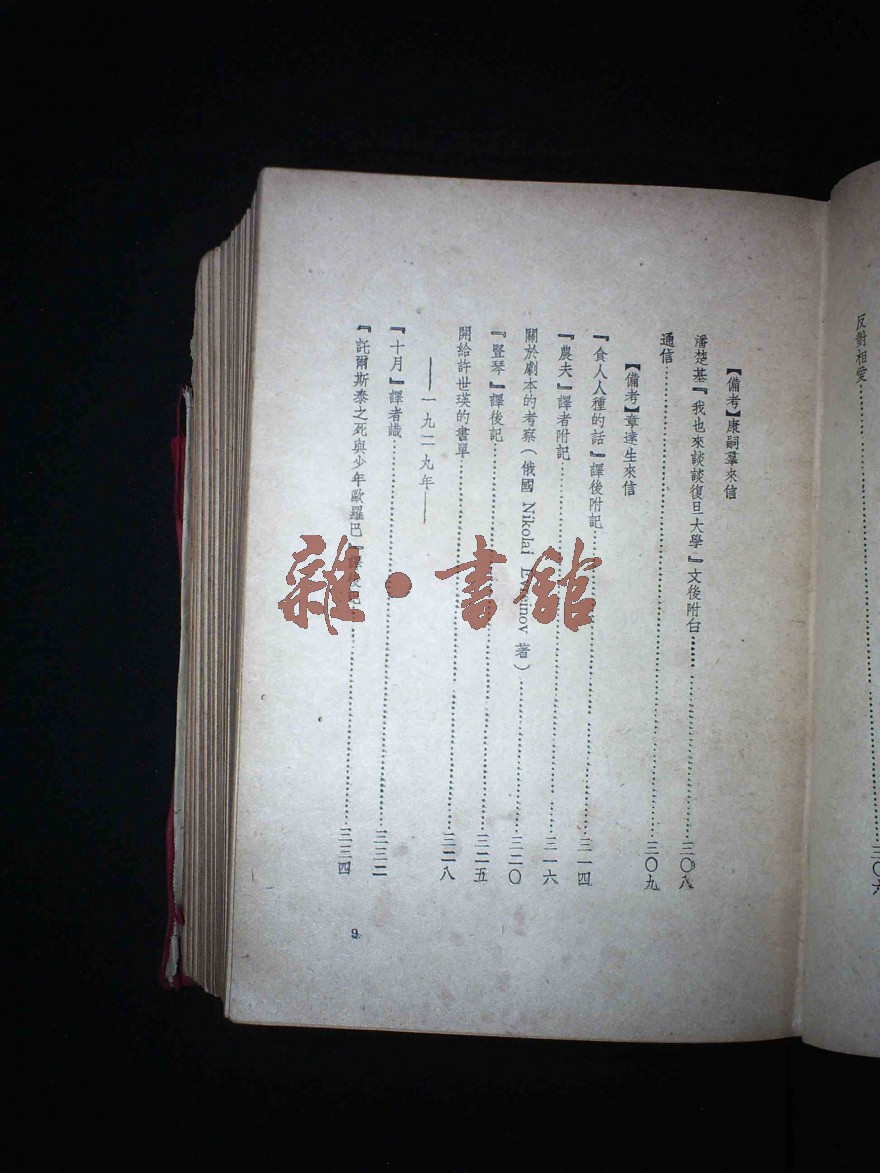 反對相愛……三〇六
【備考】康嗣羣來信
潘楚基『我也來談談復旦大學』文後附白……三〇八
通信……三〇九
【備考】章達生來信
『食人人種的話』譯後附記……三一四
『農夫』譯者附記……三一六
關於劇本的考察(俄國 Nikolai 著)……三二〇
『豎琴』譯後記……三二五
開給許世瑛的書單……三二八
——一九二九年——
『十月』譯者識……三三二
『託爾斯泰之死與少年歐羅巴』譯後記……三三四
9
雜·書館